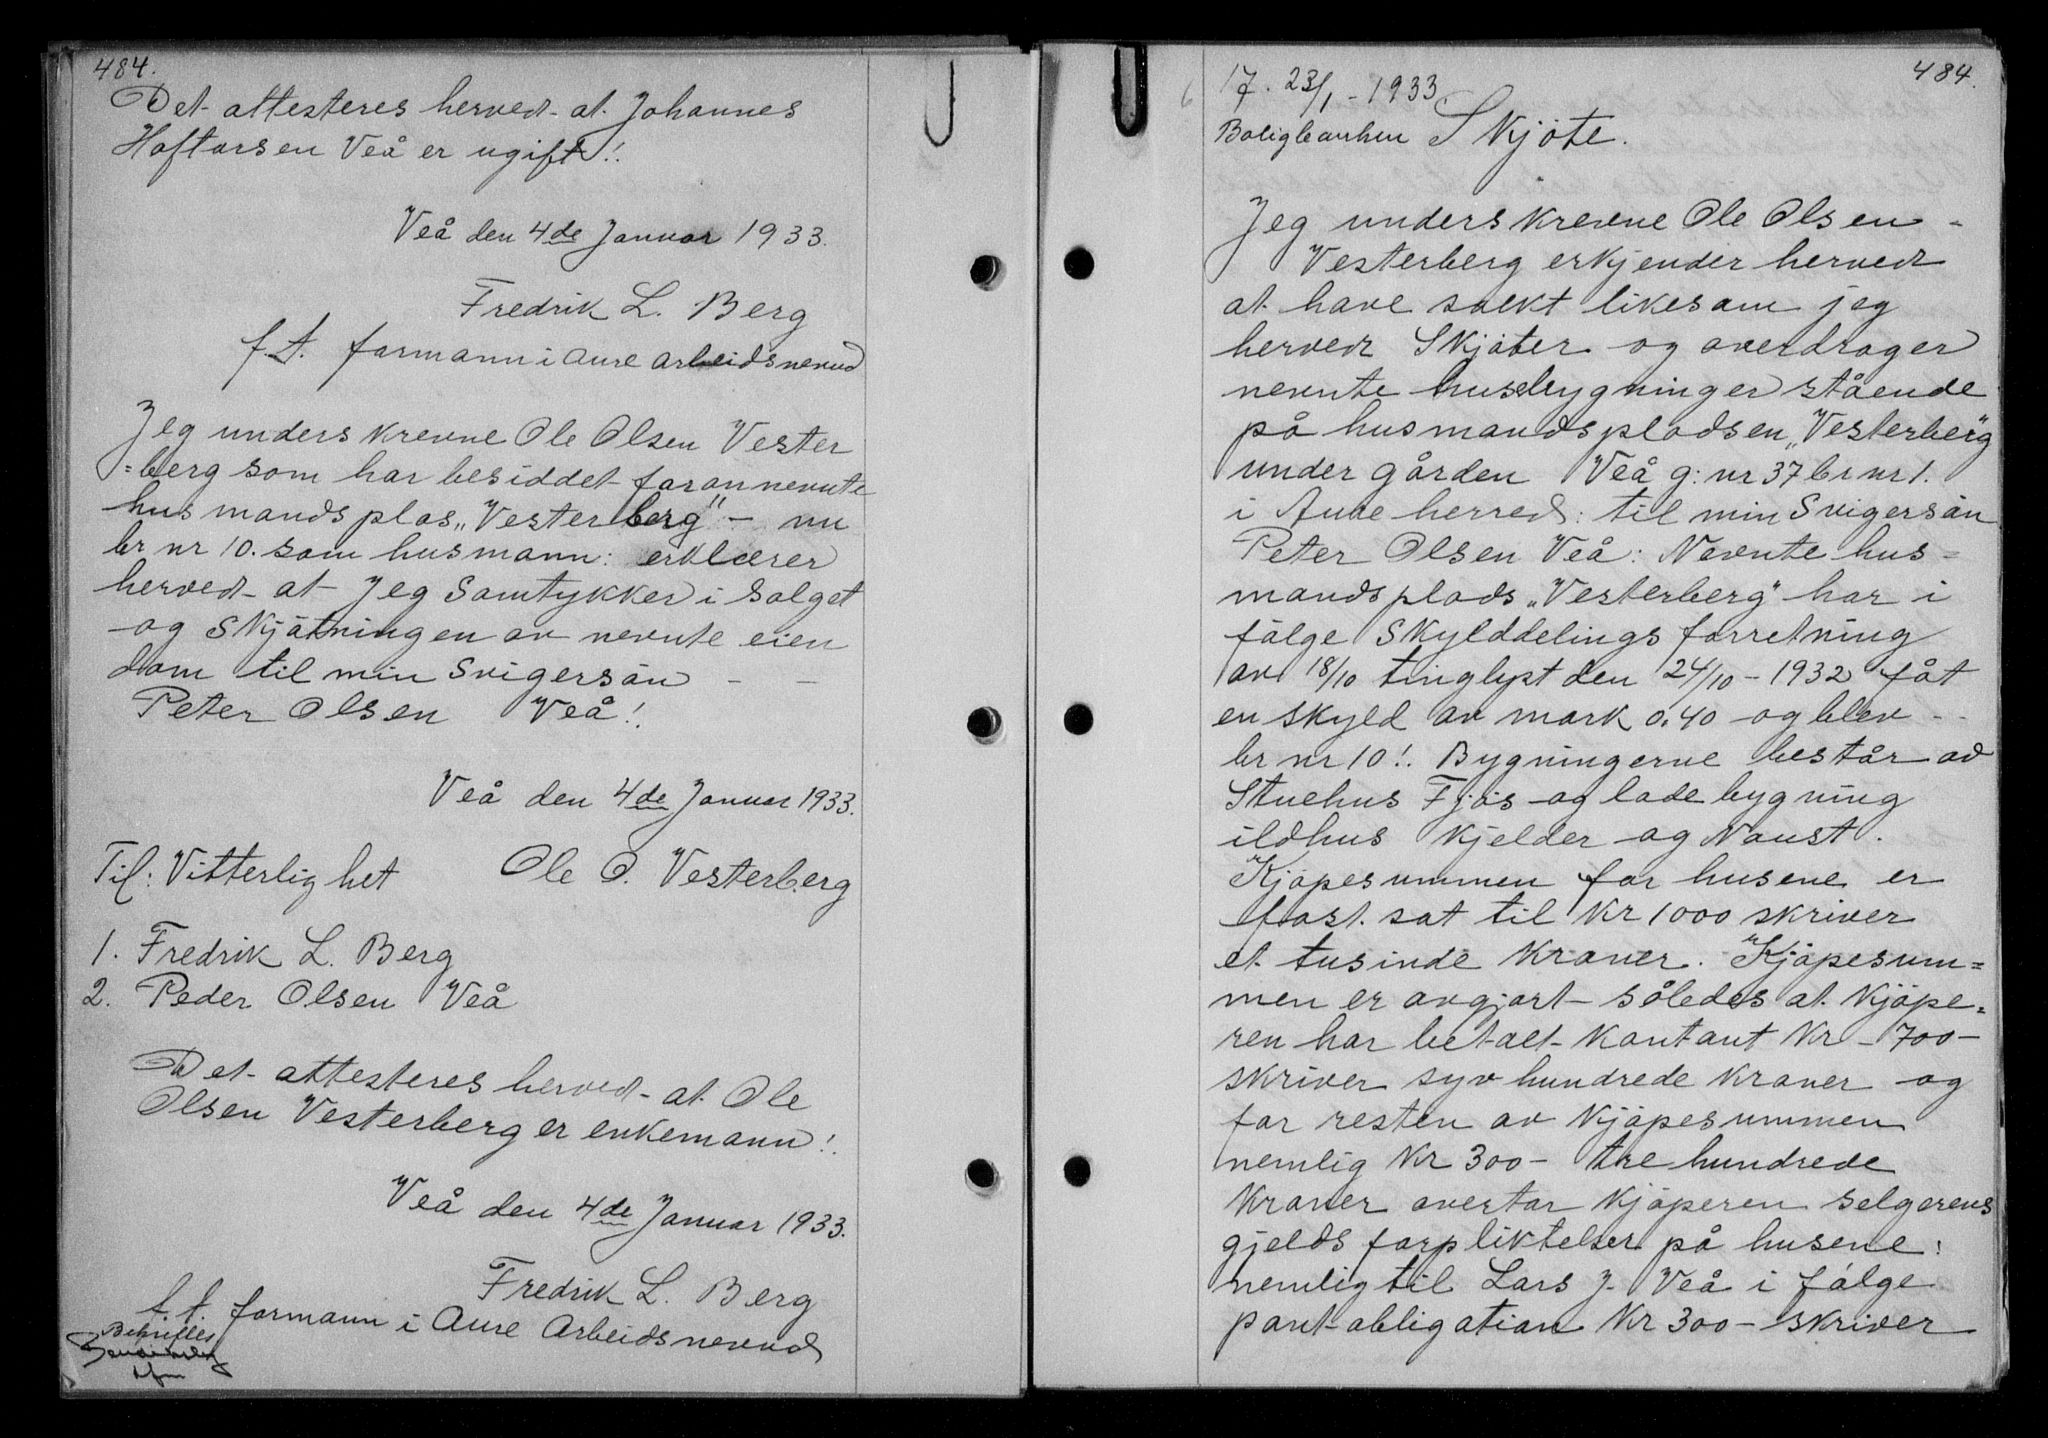 484.
Det attesteres herved at Johannes
Hoftorsen Veå er ugift!.
Veå den 4de Januar 1933.
Fredrik L. Berg
f.t. formann i Aure arbeidsnevnd
Jeg underskrevne Ole Olsen Vester
=berg som har besiddet forannevnte
husmandsplas „Vesterberg" – nu
br nr 10. som husmann: erklærer
herved at Jeg Samtykker i Salget
og Skjøtningen av nevnte eien
dom til min Svigersøn – –
Peter Olsen Veå!.
Veå den 4de Januar 1933.
Til: Vitterlighet Ole O. Vesterberg
1. Fredrik L. Berg
2. Peder Olsen Veå
Det attesteres herved at Ole
Olsen Vesterberg er enkemann!.
Veå den 4de Januar 1933.
Fredrik L. Berg
f.t. formann i Aure Arbeidsnevnd
Bekreftes
484.
17. 23/1 - 1933
Boligbanken Skjøte.
Jeg underskrevne Ole Olsen -
Vesterberg erkjender herved
at have solkt likesom jeg
herved Skjøter og overdrager
nevnte husbygninger stående
på husmandspladsen „Vesterberg"
under gården Veå g: nr 37 br nr 1.
i Aure herred: til min Svigersøn
Peter Olsen Veå: Nevnte hus=
mandsplads „Vesterberg" har i
følge Skylddelings forretning
av 18/10 tinglyst den 24/10 - 1932 fåt
en skyld av mark 0.40 og blev -
br nr 10!. Bygningerne består av
Stuehus Fjøs og lade bygning
ildhus kjelder og Naust.
Kjøpesummen for husene er
fast. sat til Kr 1000 skriver
et tusinde Kroner. Kjøpesum=
men er avgjort således at Kjøpe=
ren har betalt Kontant Kr - 700 -
skriver syv hundrede kroner og
for resten av Kjøpesummen
nemlig Kr 300 - tre hundrede
Kroner overtar Kjøperen selgerens
gjelds forpliktelser på husene:
nemlig til Lars J. Veå i følge
pantobligation Kr 300 - skriver